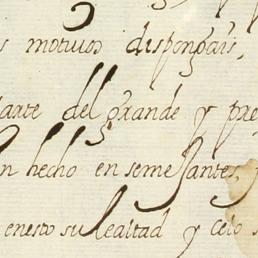 s motivos dispongais,
parte del grande y pre
n hecho en semejantes,
enesto su lealtad y celo s